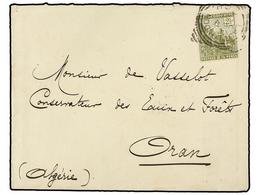 Monsieur de Vasselot
Conservateur des Eaux et Forêts
Oran
(Algérie)